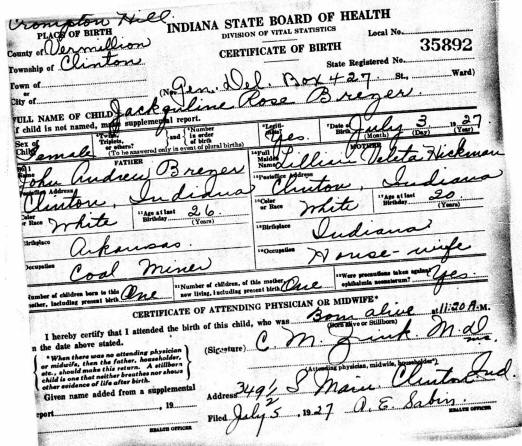 Crompton Hill
PLACE OF BIRTH
INDIANA STATE BOARD OF HEALTH
DIVISION OF VITAL STATISTICS
Local No.
County of Vermillion
CERTIFICATE OF BIRTH
35892
Township of Clinton
State Registered No.
Town of
or
City of
(No Gen. Del. Box 427 St., Ward)
FULL NAME OF CHILD Jacquline Rose Brezer
If child is not named, make supplemental report.
Sex of Child Female
Twin, Triplets, or others?
and
Number in order of birth
(To be answered only in event of plural births)
Legitimate? Yes.
Date of Birth July 3 1927
(Month) (Day) (Year)
FATHER
MOTHER
Name John Andrew Brezer
Full Maiden Name Lillian Veleta Hickman
Postoffice Address Clinton, Indiana
Postoffice Address Clinton, Indiana
Color or Race White
Age at last Birthday 26
(Years)
Color or Race White
Age at last Birthday 20
(Years)
Birthplace Arkansas.
Birthplace Indiana
Occupation Coal Miner
Occupation House-wife
Number of children born to this mother, including present birth One
Number of children, of this mother now living, including present birth One
Were precautions taken against ophthalmia neonatorum? Yes
CERTIFICATE OF ATTENDING PHYSICIAN OR MIDWIFE*
I hereby certify that I attended the birth of this child, who was Born alive at 11:20 A.M.
(Born Alive or Stillborn)
on the date above stated.
*When there was no attending physician
or midwife, then the father, householder,
etc., should make this return. A stillborn
child is one that neither breathes nor shows
other evidence of life after birth.
(Signature) C. M. Zink M.d
(Attending physician, midwife, householder*)
Given name added from a supplemental
report , 19
Address 349½ S Main Clinton Ind.
Filed July 5, 1927 A. E. Sabin
HEALTH OFFICER
HEALTH OFFICER